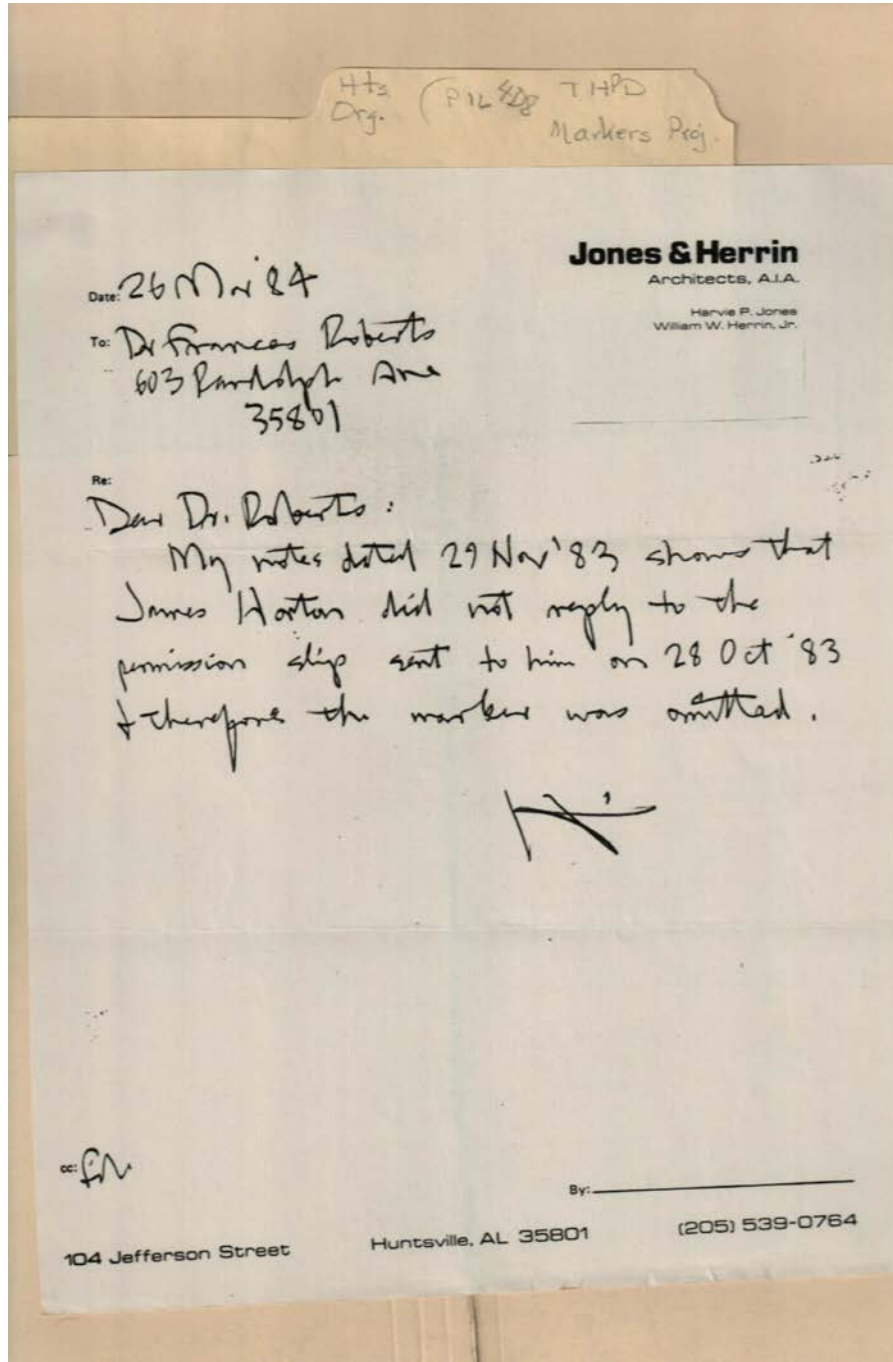 Hts.
Org.
THPD
Markers Proj.
Jones & Herrin
Architects, A.I.A.
Harvie P. Jones
William W. Herrin, Jr.
Date: 26 Mar '84
To: Dr Frances Roberts
603 Randolph Ave
35801
Re:
Dear Dr. Roberts :
My notes dated 29 Nov '83 shows that
James Horton did not reply to the
permission slip sent to him on 28 Oct '83
& therefore the marker was omitted.
cc: file
By:
104 Jefferson Street
Huntsville, AL 35801
(205) 539-0764